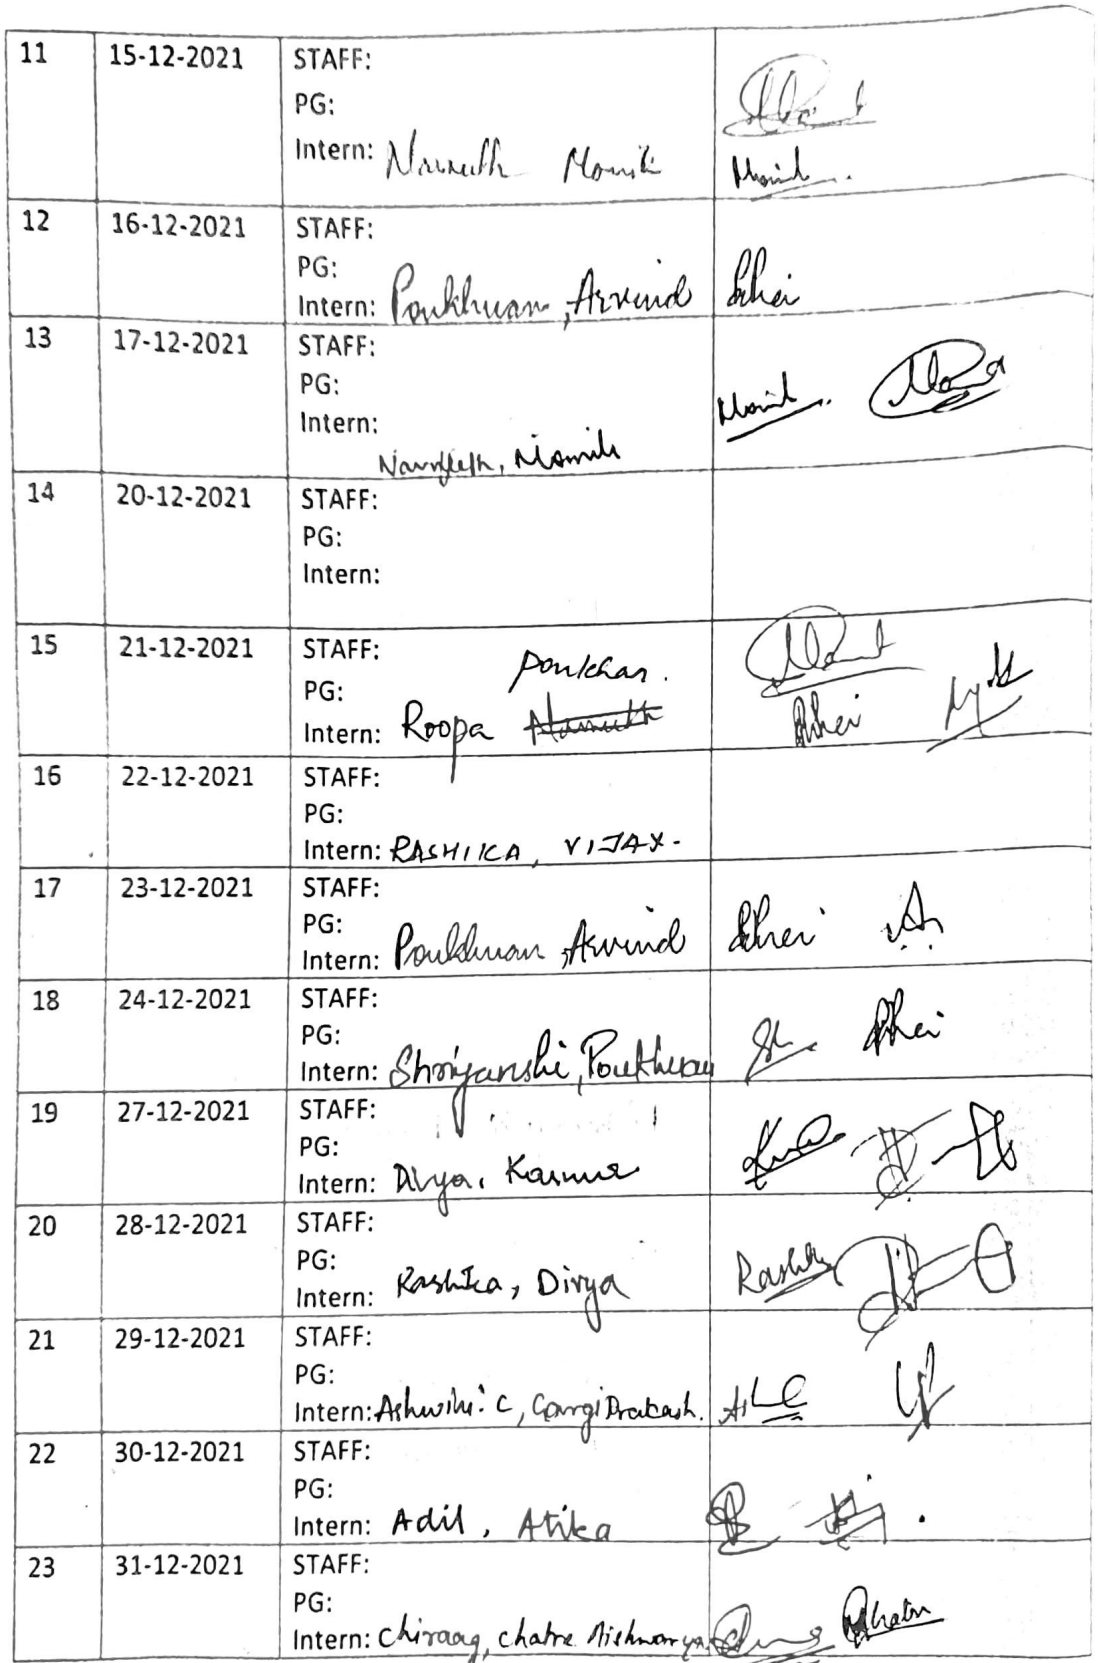 11 15-12-2021 STAFF:
PG:
Intern: Mouli
12 16-12-2021 STAFF:
PG:
Intern: Poukhuan, Arvind
13 17-12-2021 STAFF:
PG:
Intern:
14 20-12-2021 STAFF:
PG:
Intern:
15 21-12-2021 STAFF:
Poukhan.
PG:
Intern: Roopa
16 22-12-2021 STAFF:
PG:
Intern: RASHIKA, VIJAY.
17 23-12-2021 STAFF:
PG:
Intern: Poukhuan, Arvind
18 24-12-2021 STAFF:
PG:
Intern: Shriyanshi, Poukhuan
19 27-12-2021 STAFF:
PG:
Intern: Divya,
20 28-12-2021 STAFF:
PG:
Intern: Rashika, Divya Rashika
21 29-12-2021 STAFF:
PG:
Intern: Ashwini C, Gargi Prakash.
22 30-12-2021 STAFF:
PG:
Intern: Adil, Atika
23 31-12-2021 STAFF:
PG:
Intern: Chiraag, Chatre Aishwarya